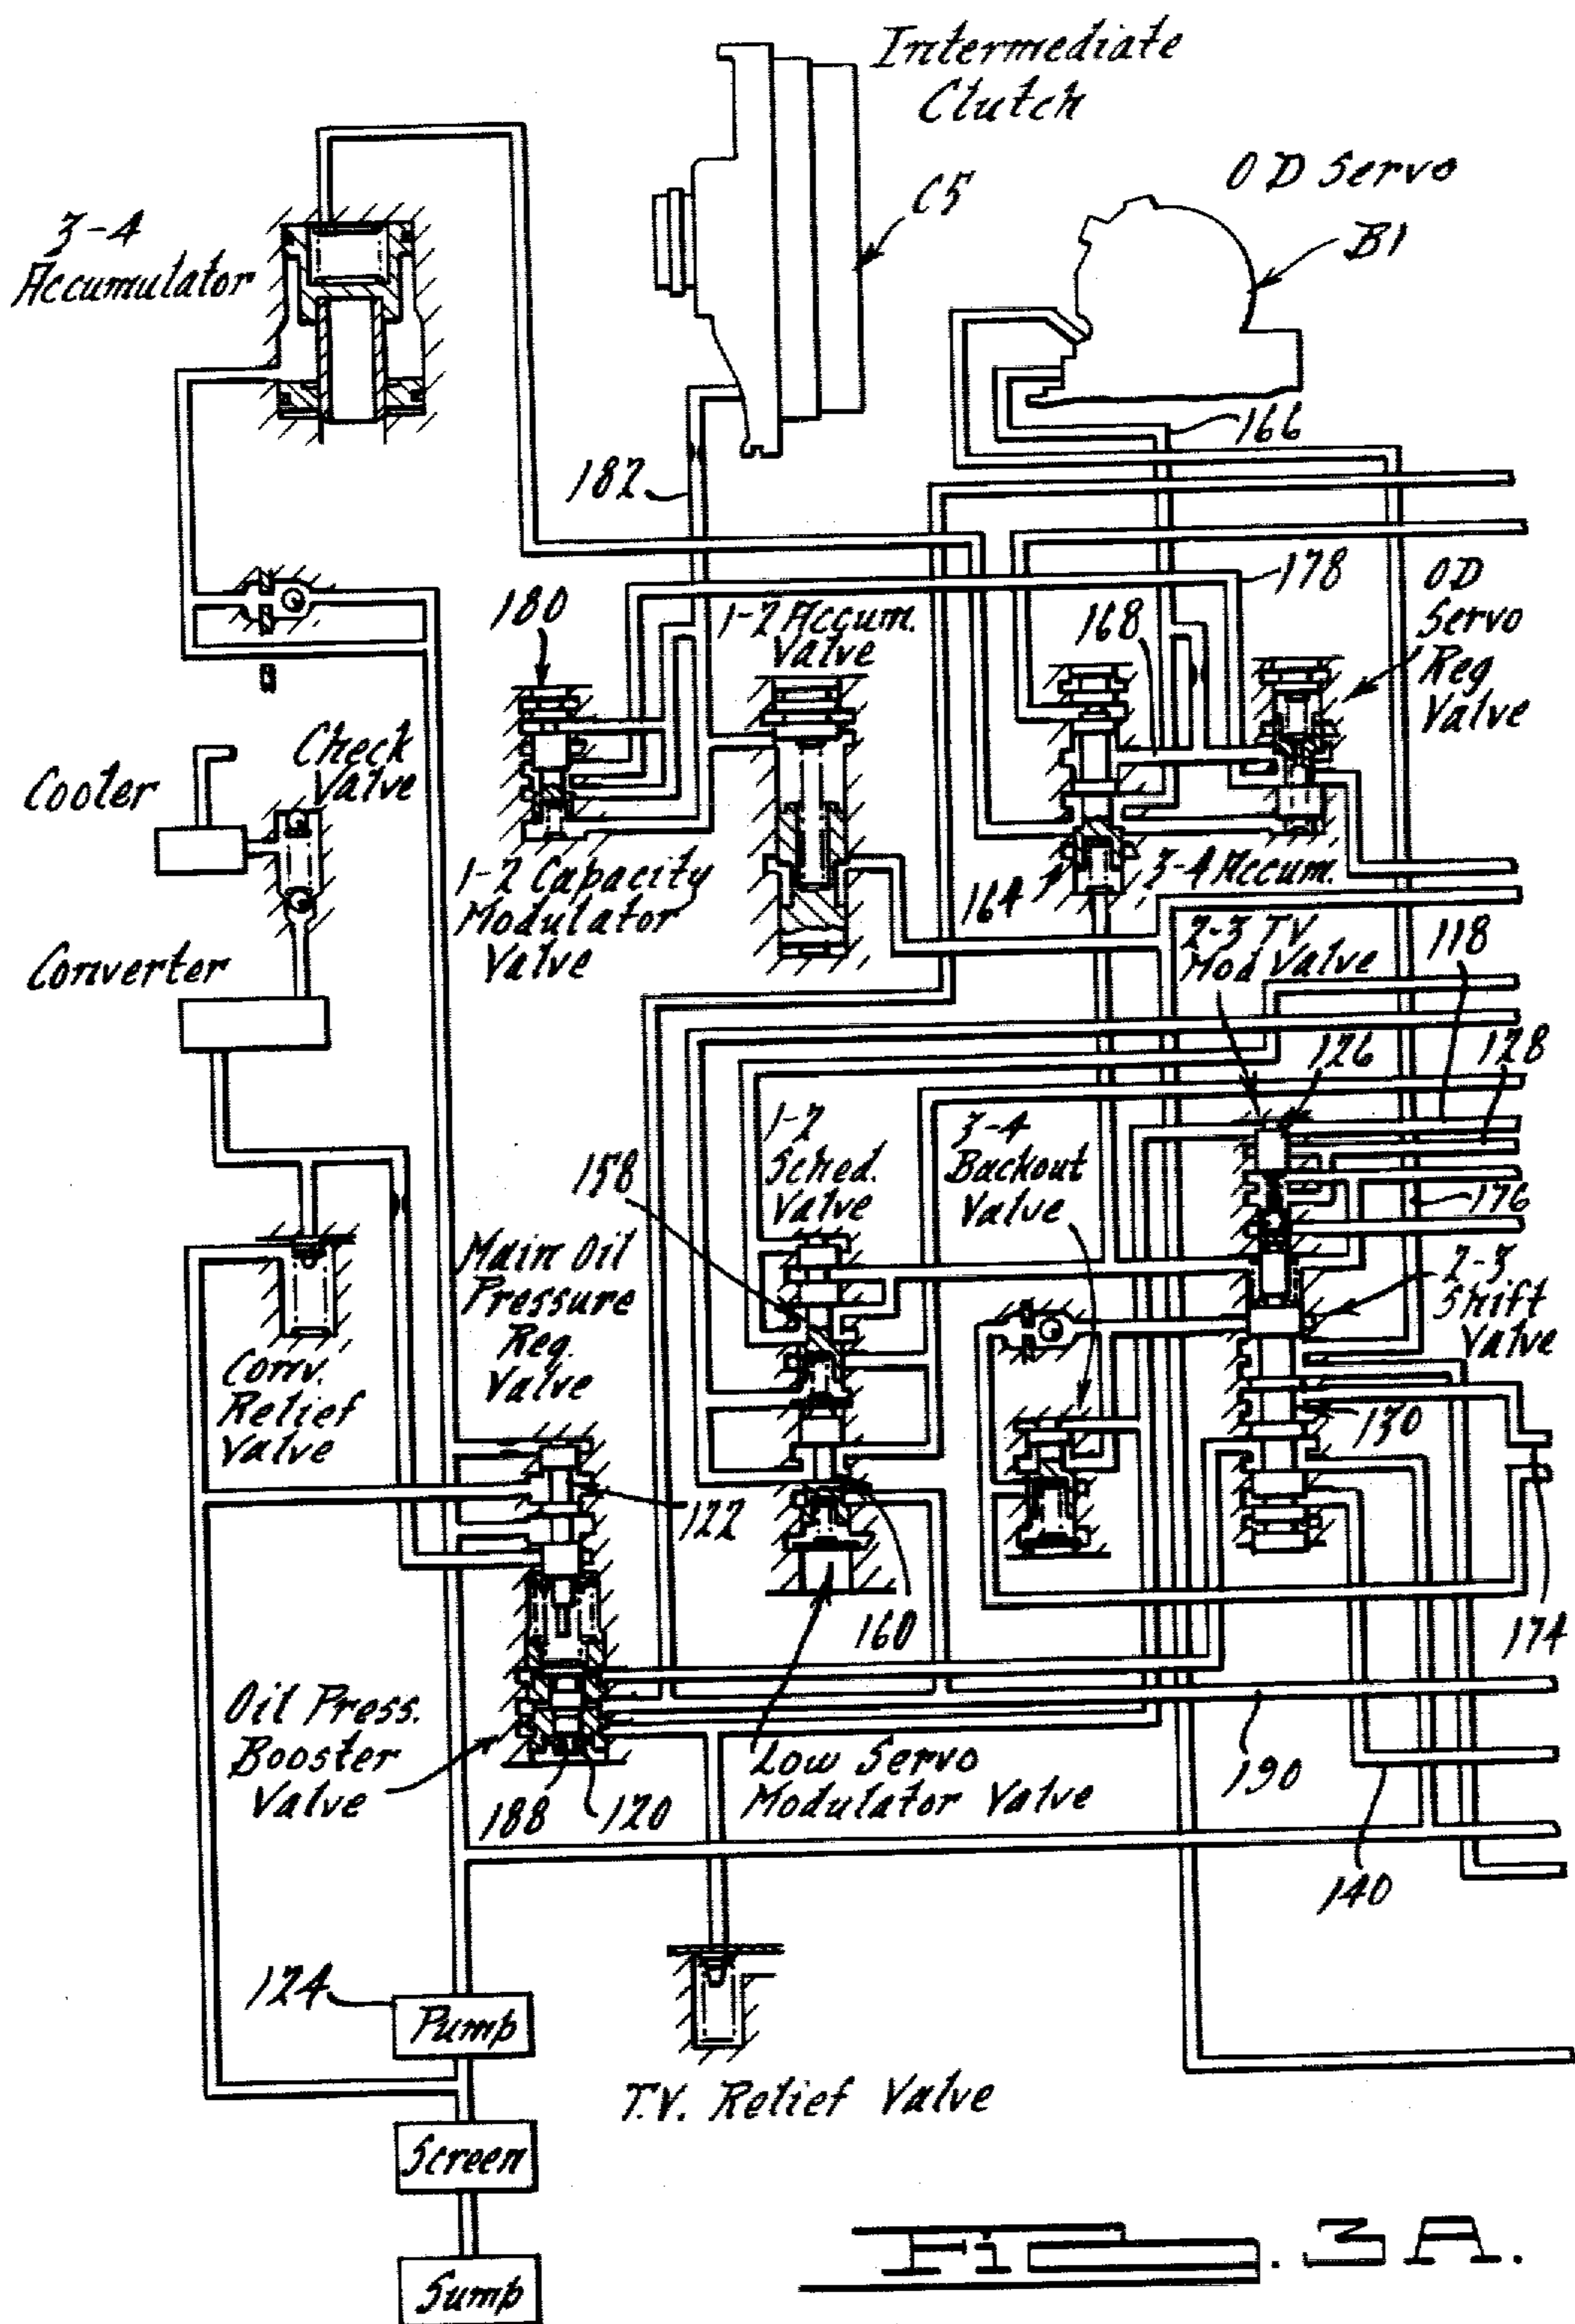 Intermediate
Clutch
C5
OD Servo
B1
3-4
Accumulator
166
182
178
OD
Servo
Reg
Valve
180
1-2 Accum.
Valve
168
Check
Valve
Cooler
1-2 Capacity
Modulator
Valve
164
3-4 Accum.
2-3 TV
Mod Valve
118
Converter
126
128
1-2
Sched.
Valve
3-4
Backout
Valve
158
176
Main Oil
Pressure
Reg.
Valve
2-3
Shift
Valve
Conv.
Relief
Valve
130
122
160
174
Oil Press.
Booster
Valve
188
120
Low Servo
Modulator Valve
190
140
124
Pump
T.V. Relief Valve
Screen
Sump
Fig. 3A.